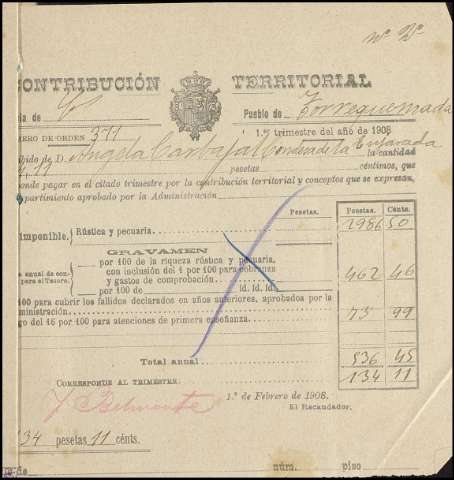 Nº Dº
CONTRIBUCIÓN TERRITORIAL
ia de Pueblo de Torrequemada
MERO DE ORDEN 311 1.er trimestre del año de 1908
bido de D. Angela Carbajal Condesa de la Enjarada la cantidad
pesetas céntimos, que
onde pagar en el citado trimestre por la contribución territorial y conceptos que se expresan,
partimiento aprobado por la Administración
Pesetas. Pesetas. Cents.
imponible. Rústica y pecuaria. 1986 50
GRAVAMEN
por 100 de la riqueza rústica y pecuaria,
a anual de con- con inclusión del 1 por 100 para cobranza 462 46
para el Tesoro. y gastos de comprobación.
por 100 de id. id. id.
100 para cubrir los fallidos declarados en años anteriores, aprobados por la
ministración. 73 99
go del 16 por 100 para atenciones de primera enseñanza.
Total anual 536 45
CORRESPONDE AL TRIMESTRE. 134 11
1.º de Febrero de 1908.
Y Belmonte El Recaudador,
134 pesetas 11 cénts.
núm. piso